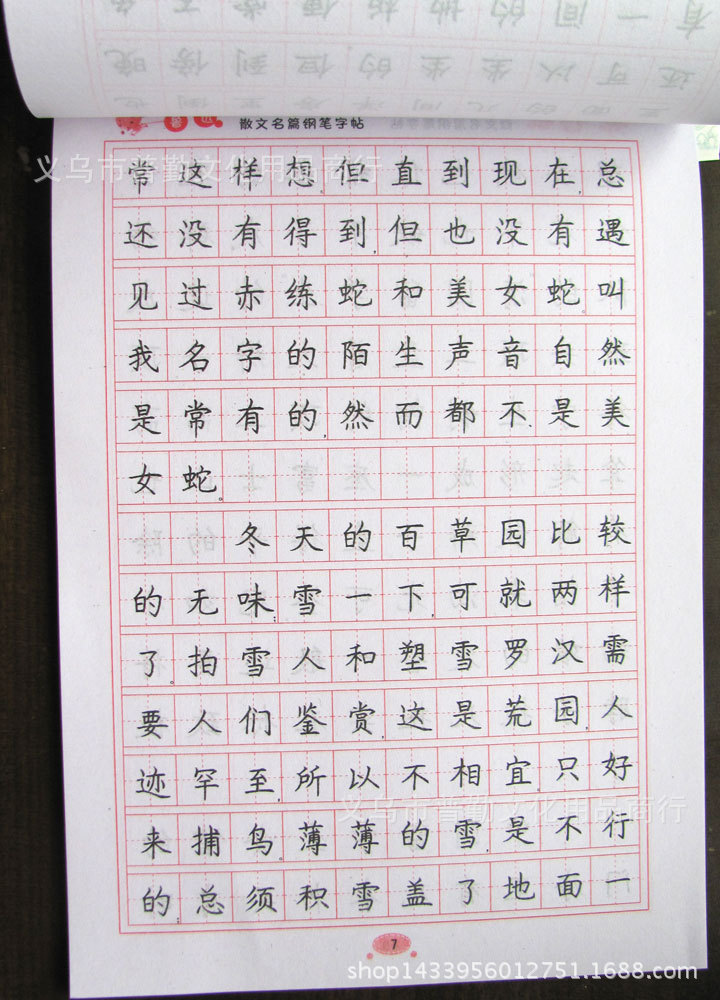 散文名篇钢笔字帖
义乌市普勤文化用品商行
常这样想,但直到现在,总
还没有得到,但也没有遇
见过赤练蛇和美女蛇。叫
我名字的陌生声音自然
是常有的,然而都不是美
女蛇。
冬天的百草园比较
的无味;雪一下,可就两样
了。拍雪人和塑雪罗汉需
要人们鉴赏,这是荒园,人
迹罕至,所以不相宜,只好
来捕鸟。薄薄的雪,是不行
义乌市普勤文化用品商行
的;总须积雪盖了地面一
7
shop1433956012751.1688.com